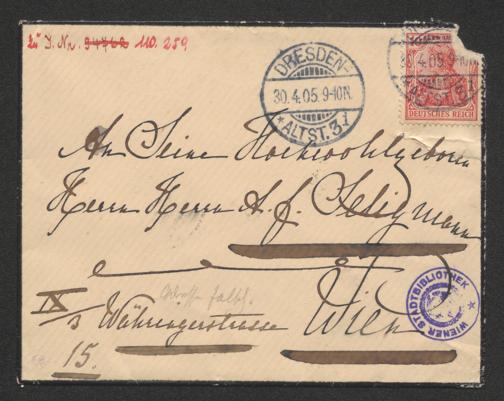 Zu I. Nr. 94762 110.259
DRESDEN-
30.4.05.9-10N.
* ALTST. 31
DRESDEN-
30.4.05.9-10N.
* ALTST. 31
DEUTSCHES REICH
An Seine Hochwohlgeboren
Herrn Herrn A. F. Seligmann
IX/3 Währingerstrasse Wien
15.
WIENER STADTBIBLIOTHEK